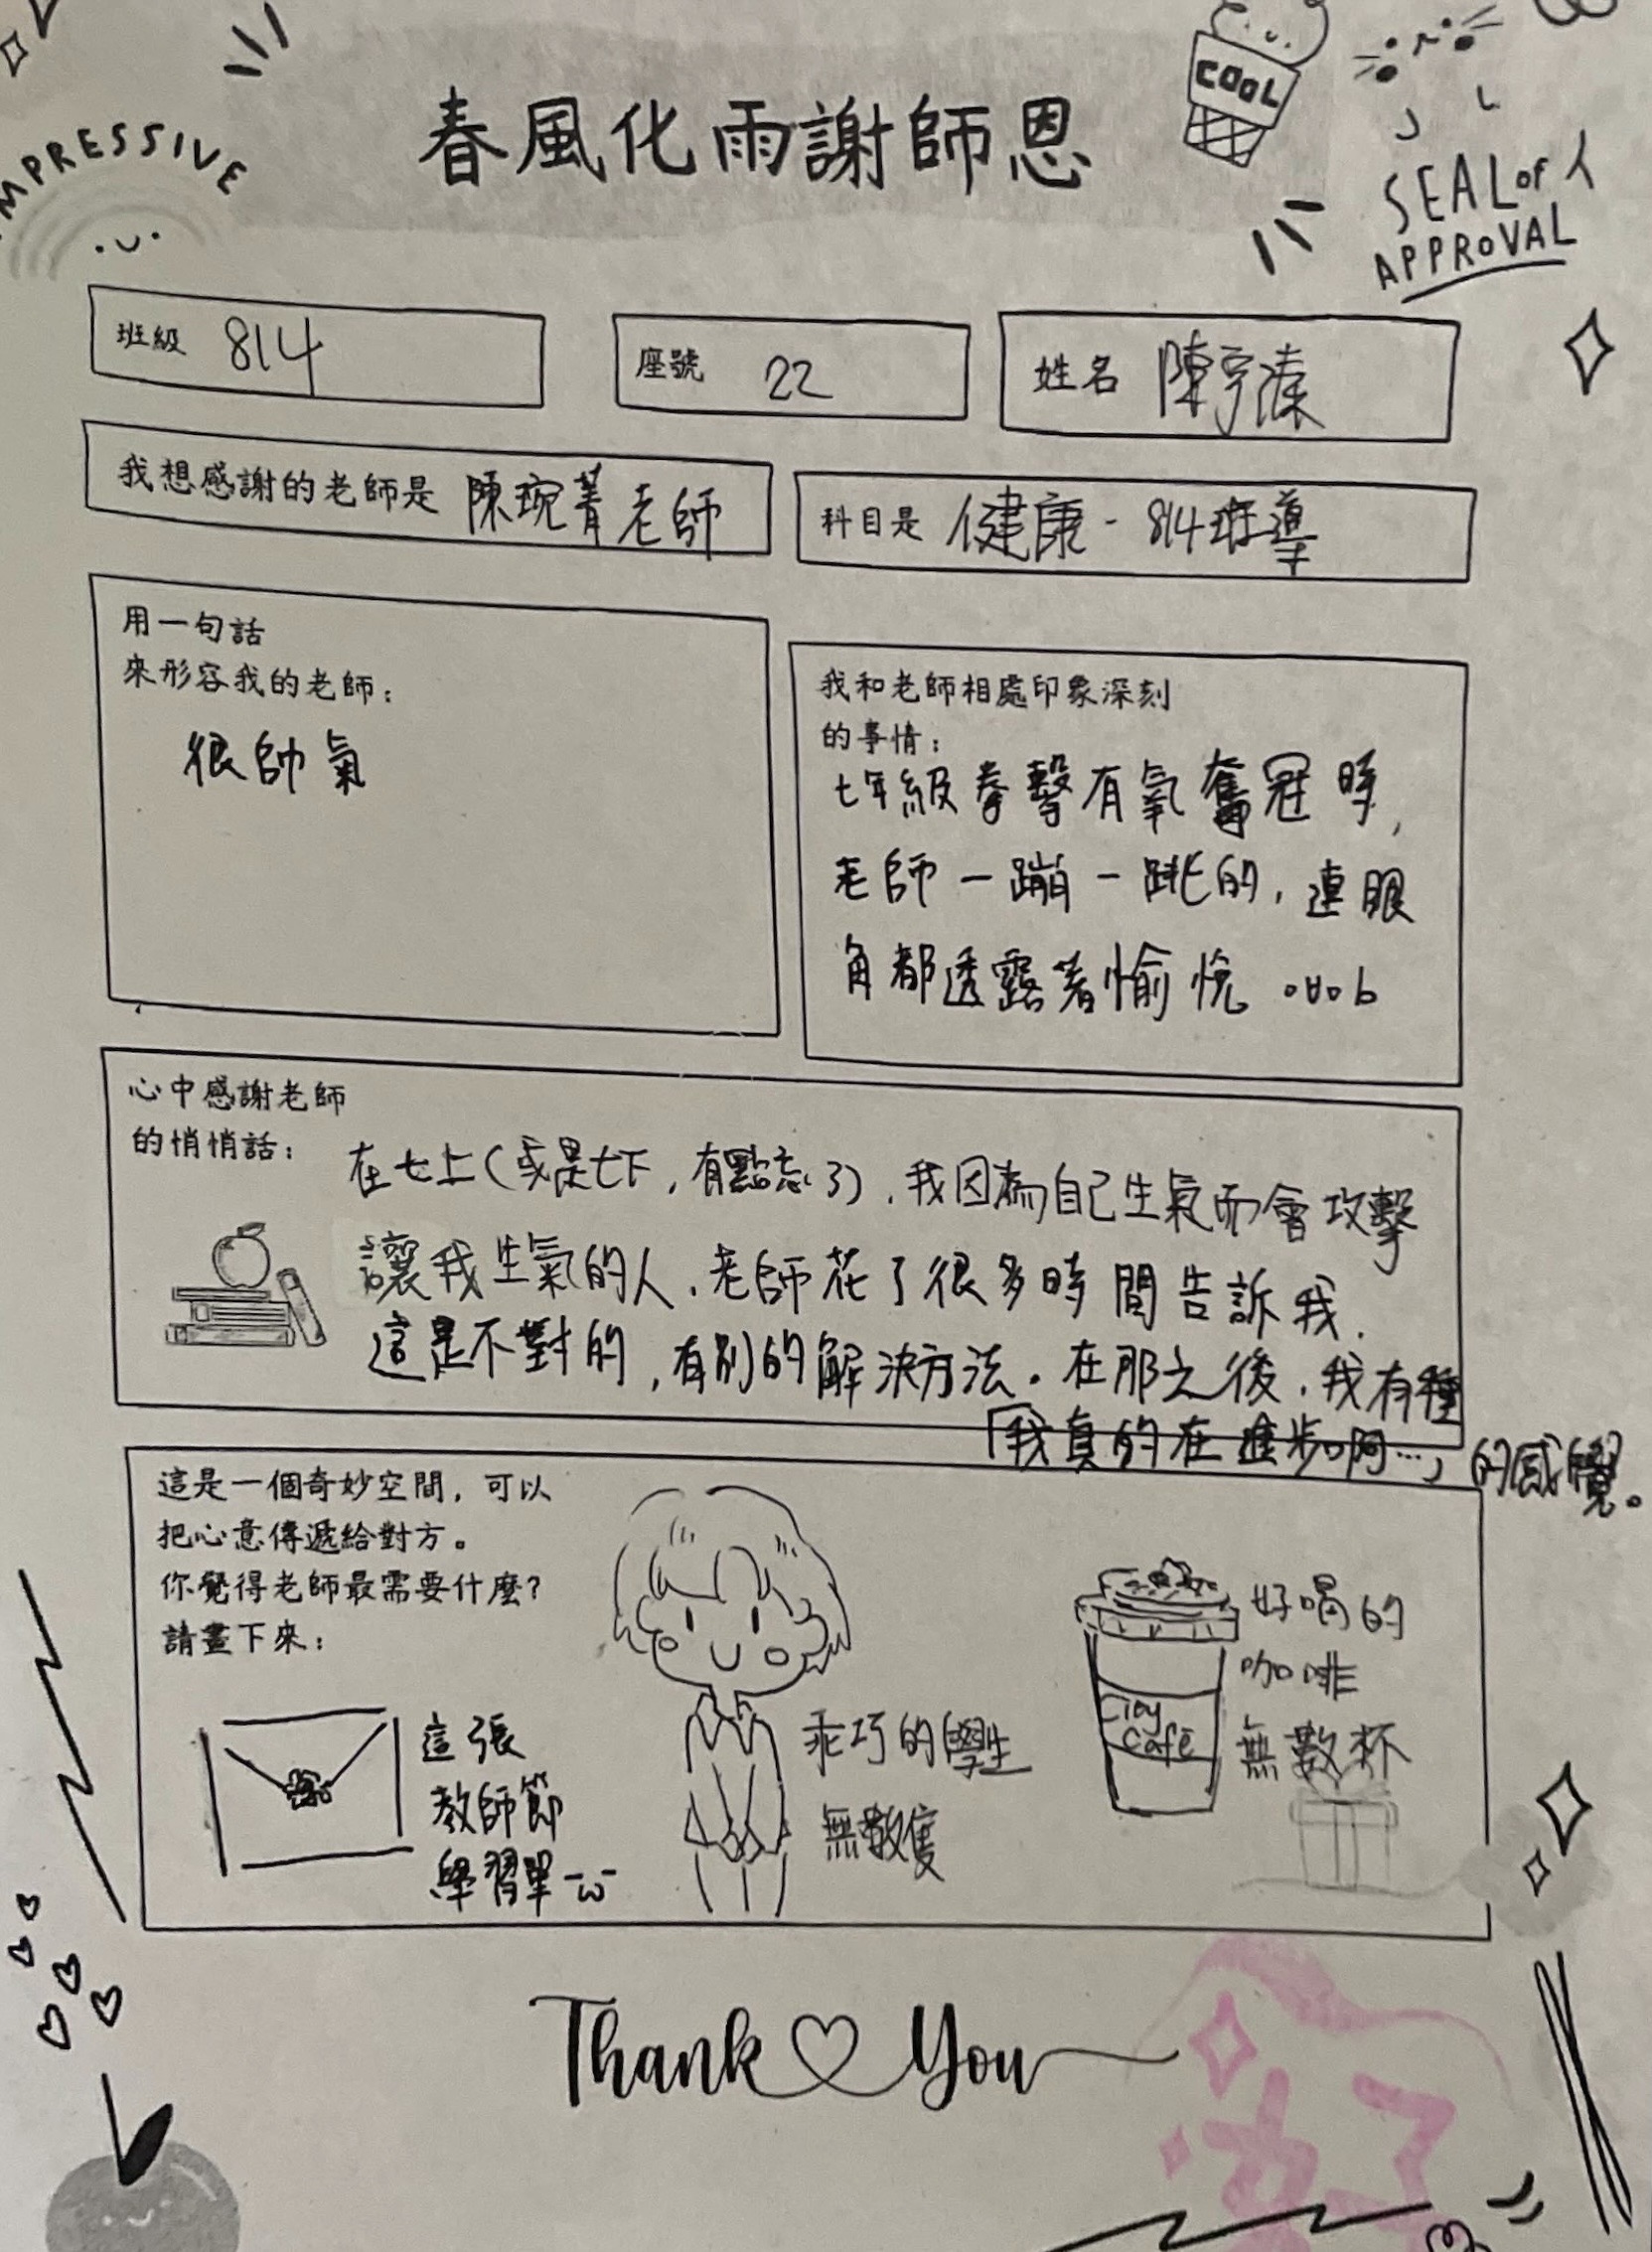 IMPRESSIVE
春風化雨謝師恩
COOL
SEAL OF
APPROVAL
班級 814
座號 22
姓名 陳宇溱
我想感謝的老師是 陳琬菁老師
科目是 健康-814班導
用一句話
來形容我的老師:
很帥氣
我和老師相處印象深刻
的事情:
七年級拳擊有氧奪冠時,
老師一蹦一跳的,連眼
角都透露著愉悅
心中感謝老師
的悄悄話:
在七上(或是七下,有點忘了),我因為自己生氣而會攻擊
讓我生氣的人,老師花了很多時間告訴我,
這是不對的,有別的解決方法。在那之後,我有種
「我真的在進步啊…」的感覺。
這是一個奇妙空間,可以
把心意傳遞給對方。
你覺得老師最需要什麼?
請畫下來:
這張
教師節
學習單
乖巧的學生
無數隻
City
Café
好喝的
咖啡
無數杯
Thank You
好